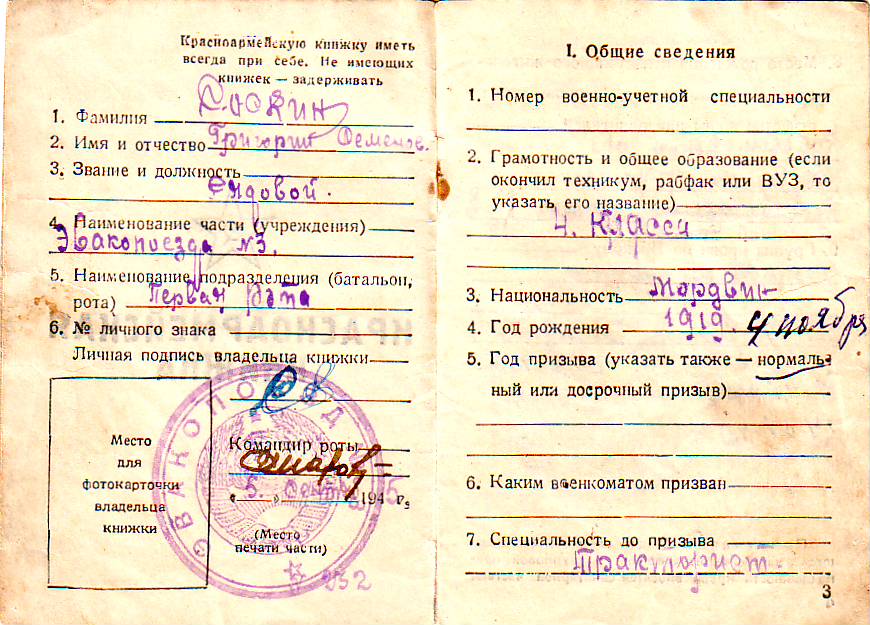 Красноармейскую книжку иметь
всегда при себе. Не имеющих
книжек — задерживать
1. Фамилия
2. Имя и отчество Григорий Семенов.
3. Звание и должность
Рядовой.
4. Наименование части (учреждения)
Эвакопоезда №3.
5. Наименование подразделения (батальон,
рота) Первая рота
6. № личного знака
Личная подпись владельца книжки
Место
для
фотокарточки
владельца
книжки
Командир роты
„5.“ 194 г.
(Место
печати части)
ЭВАКОПОЕЗД
252
I. Общие сведения
1. Номер военно-учетной специальности
2. Грамотность и общее образование (если
окончил техникум, рабфак или ВУЗ, то
указать его название)
4. Класса
3. Национальность Мордвин
4. Год рождения 1919. 4 ноября
5. Год призыва (указать также — нормаль-
ный или досрочный призыв)
6. Каким военкоматом призван
7. Специальность до призыва
Тракторист.
3